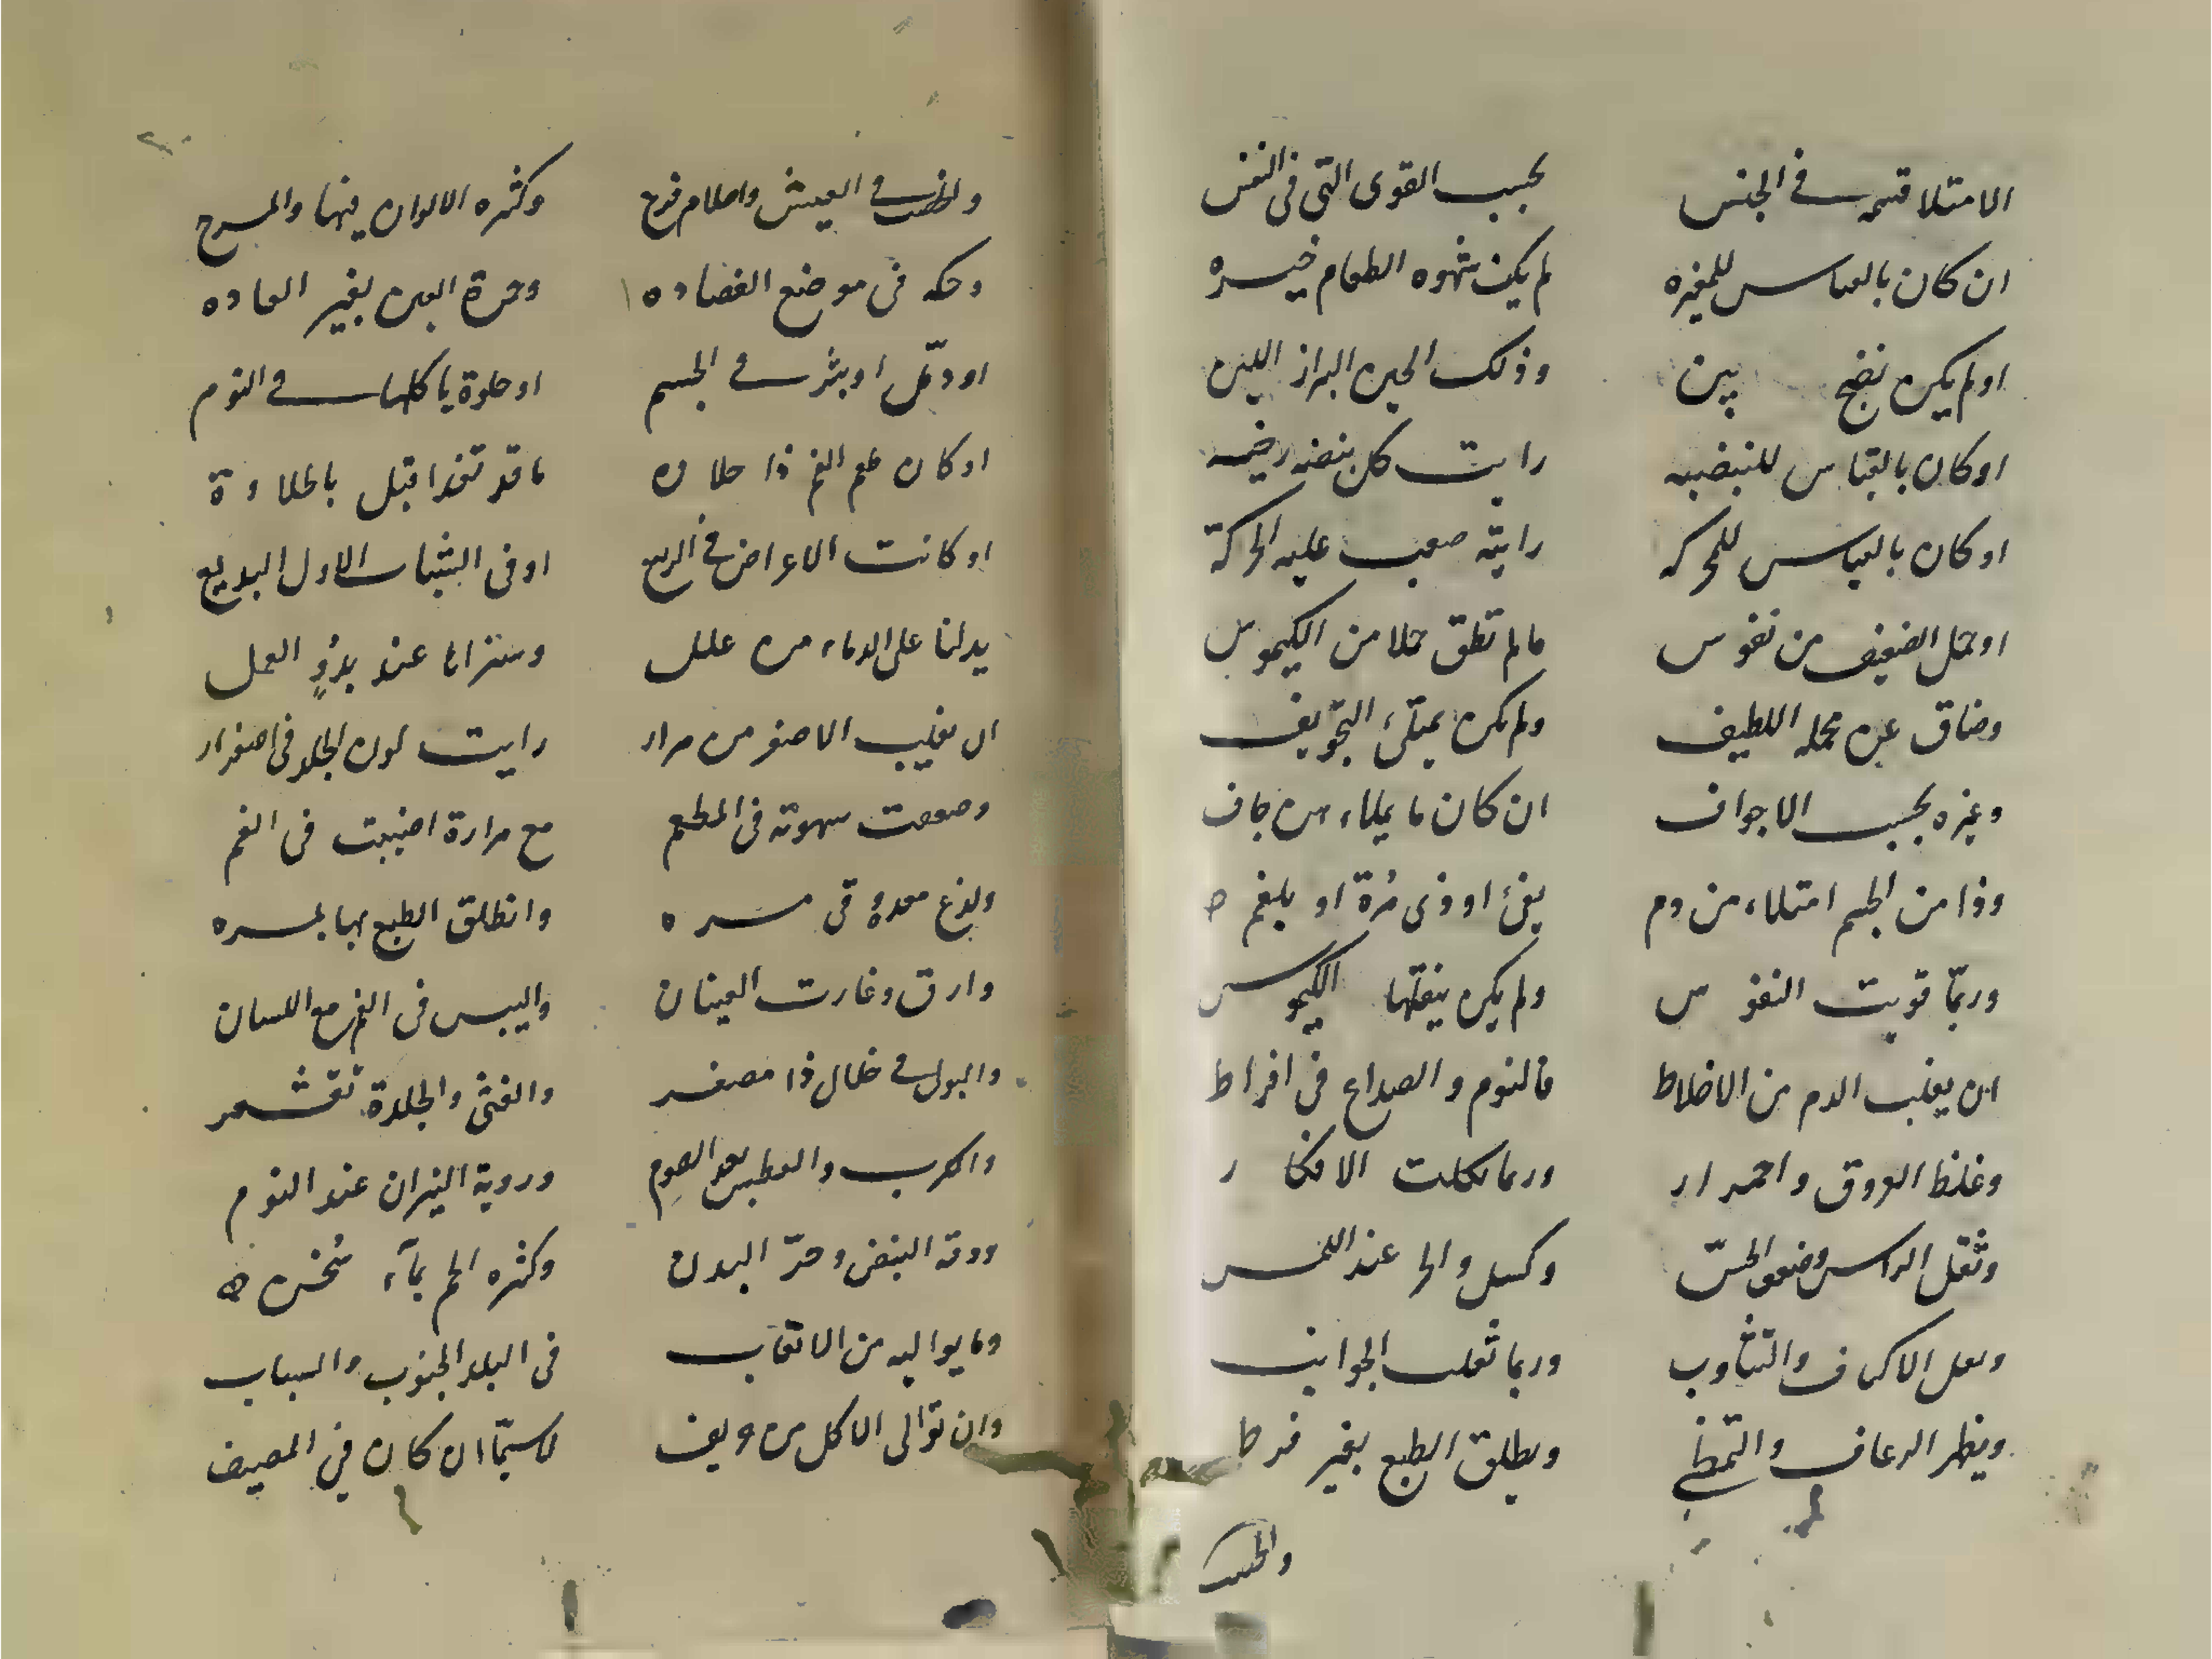 الامتلا قسمه في الجنس بحسب القوى التى فى النفس
ان كان بالقياس للمغيره لم يكن شهوه الطعام خيره
اولم يكن نضج يبين وذلك الحين البراز اللين
اوكان بالقياس للنبضيه رايت كل نبضه رخيه
اوكان بالقياس للمحركه رايته صعب عليه الحركة
اوحمل الضعيف من نفوس مالم تطق حملا من الكيموس
وضاق عن محمله اللطيف ولم يكن يمتلئ التجويف
وغيره بحسب الاجواف ان كان ما يملاء من جاف
وذا من الجسم امتلاء من دم يفئ او ذى مُرة او بلغم
وربمّا قويت النفوس ولم يكن يثقلها الكيموس
ان يغلب الدم من الاخلاط فالنوم والصداع فى افراط
وغلظ العروق واحمرار وربما كلت الافكار
وثقل الراس وضعف الحسّ وكسل والحر عند اللمس
وثقل الاكتاف والتثاوب وربما ثقلت الجوانب
ويظهر الرعاف والتمّطي ويطلق الطبع بغير فرط
والخصب
والخصب فى العيش واحلام فرح وكثره الالوان فيها والمرح
وحكه فى موضع الفصاده وحمرة العين بغير العاده
اودمّل اوبثر فى الجسم اوحلوة ياكلها فى النوم
اوكان طعم الفم ذا حلاوه ماقد تغذا قبل بالحلاوة
اوكانت الاعراض فى الربيع اوفى الشباب الاول البديع
يدلنا على الدماء من علل وسنراها عند بدؤ العمل
ان يغلب الاصفر من مرار رايت لون الجلد فى اصفرار
وضعفت شهوته فى المطعم مع مرارة اصيبت فى الفم
ولذع معدة وقى مره وانطلق الطبع بها بمره
وارق وغارت العينان واليبس فى الفم مع اللسان
والبول فى خلال ذا مصفر والغثى والجلدة تقشعر
والكرب والعطس بعد الصوم وروية النيران عند النوم
ودقه النبض وحرّ البدن وكثره الحم بمآء سُخن
وما يواليه من الاتعاب فى البلد الجنوب والشباب
وان توالى الاكل من حريف لاسيمّا ان كان في المصيف